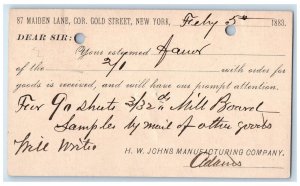 87 MAIDEN LANE, COR. GOLD STREET, NEW YORK, Feby 5th 1883.
DEAR SIR:
Your esteemed favor
of the 2/1 with order for
goods is received, and will have our prompt attention.
For 9 sheets 3/32nd Mill Board
Samples by mail of other goods
Will Write
H. W. JOHNS MANUFACTURING COMPANY.
Adams